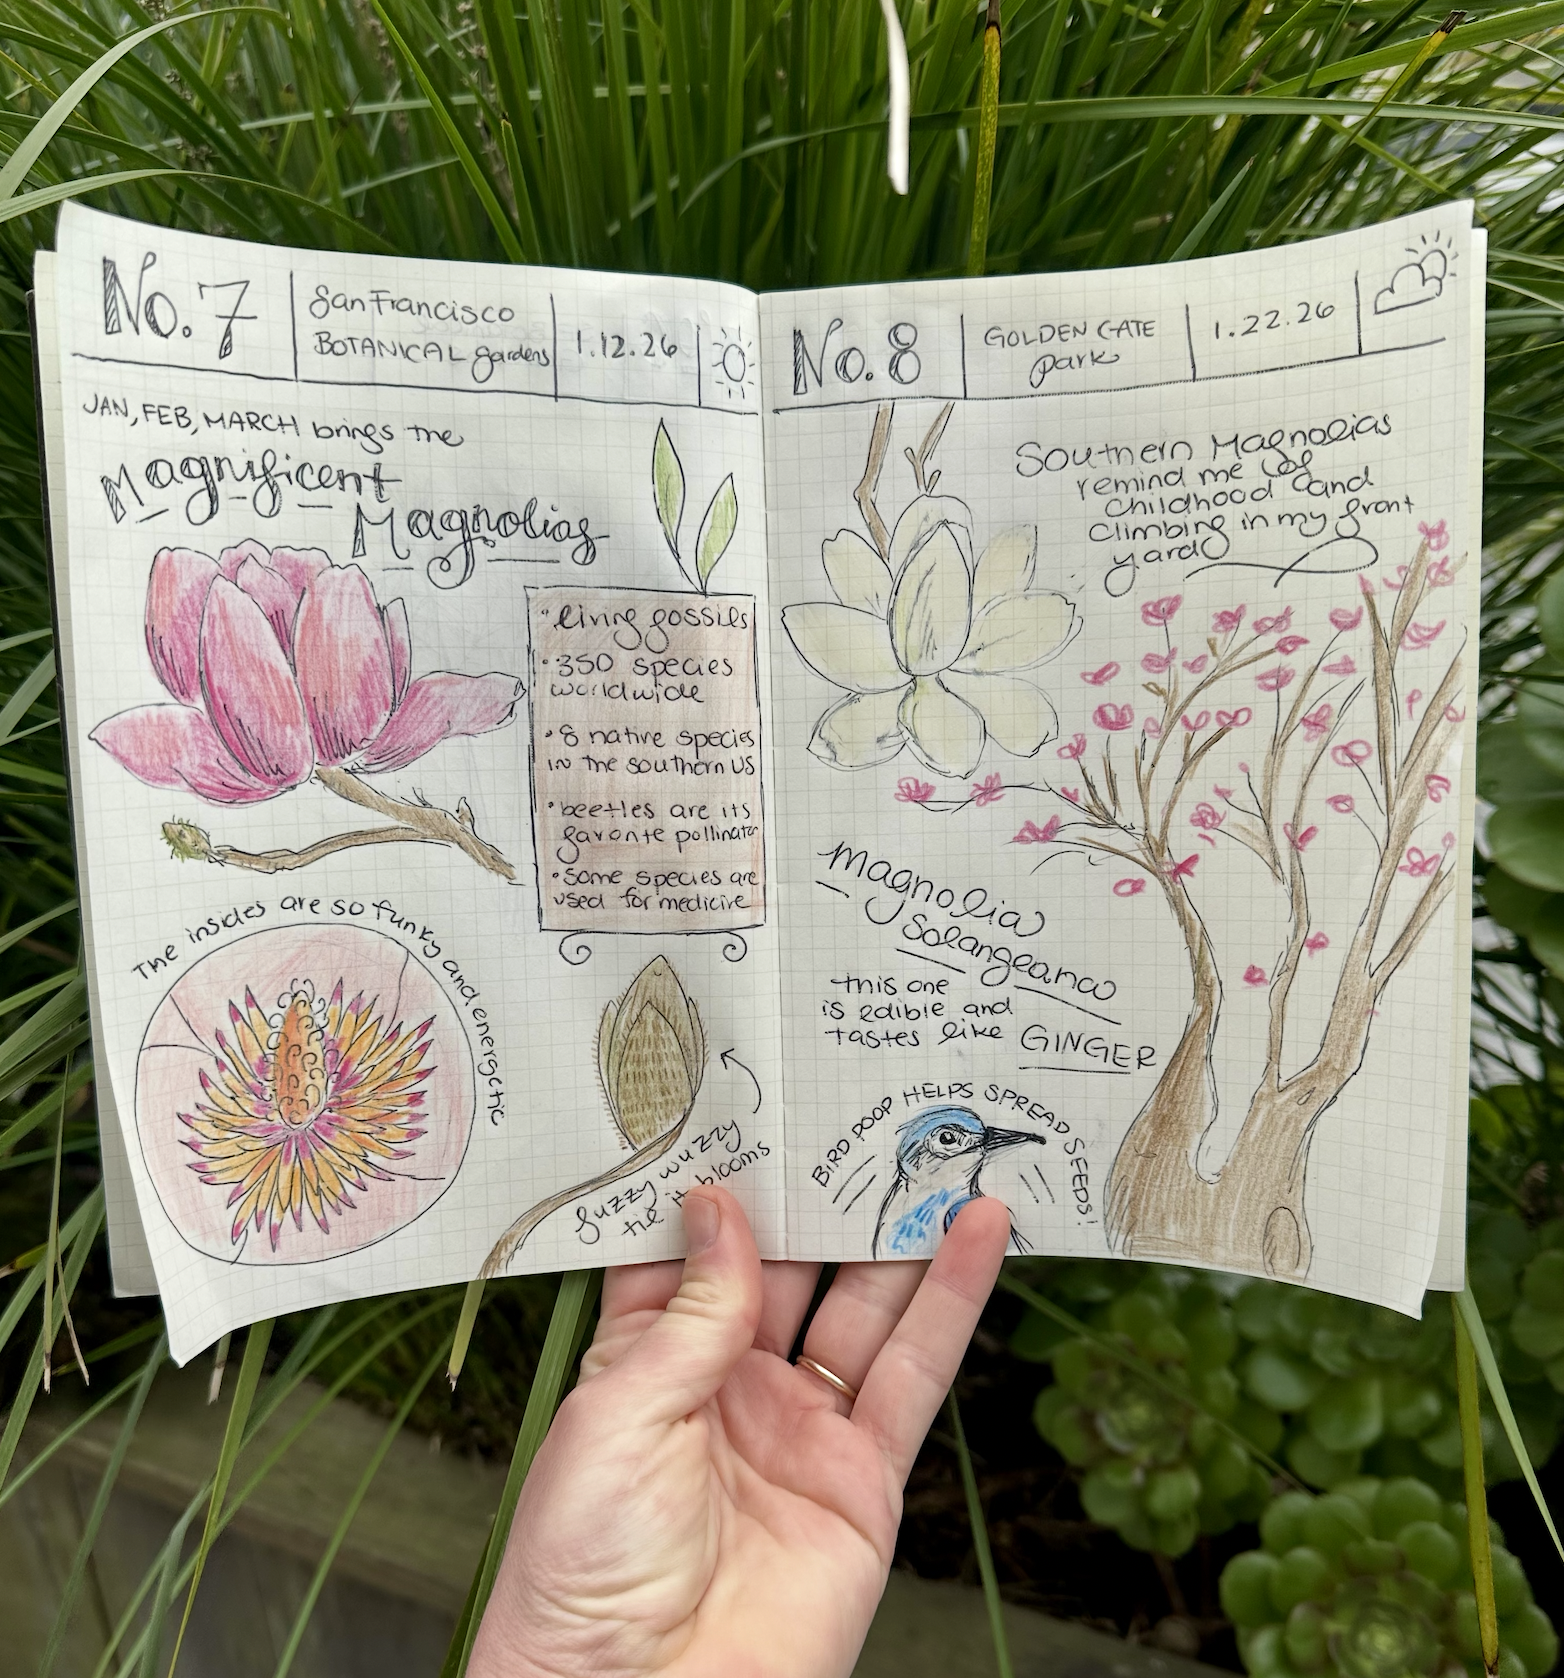 No. 7
San Francisco
BOTANICAL gardens
1.12.26
JAN, FEB, MARCH brings the
Magnificent
Magnolias
• living fossils
• 350 species
worldwide
• 8 native species
in the southern US
• beetles are its
favorite pollinator
• some species are
used for medicine
The insides are so funky and energetic
fuzzy wuzzy
til it blooms
No. 8
GOLDEN GATE
park
1.22.26
Southern Magnolias
remind me of
childhood and
climbing in my front
yard
Magnolia
Solangeana
this one
is edible and
tastes like GINGER
BIRD POOP HELPS SPREAD SEEDS!